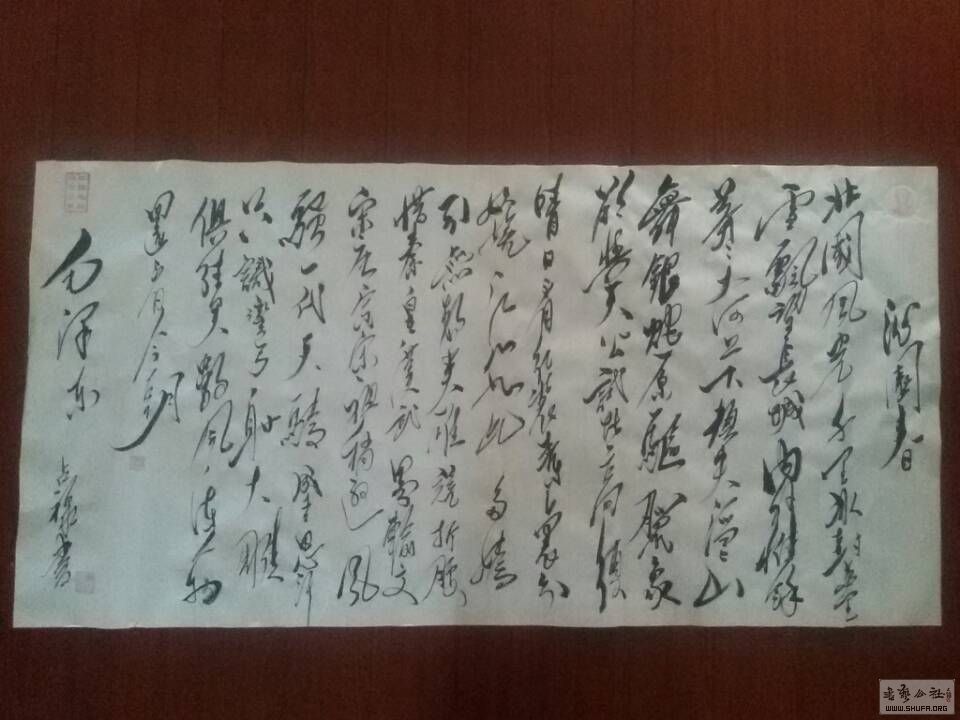 沁園春
北國風光千里冰封萬里
雪飄望長城內外惟餘
莽莽大河上下頓失滔滔山
舞銀蛇原驅臘象
欲與天公試比高須
晴日看紅裝素裹分外
妖嬈江山如此多嬌
引無數英雄競折腰
惜秦皇漢武略輸文
采唐宗宋祖稍遜風
騷一代天驕成吉思汗
只識彎弓射大雕
俱往矣數風流人物
還看今朝
毛澤東
書
WWW.SHUFA.ORG